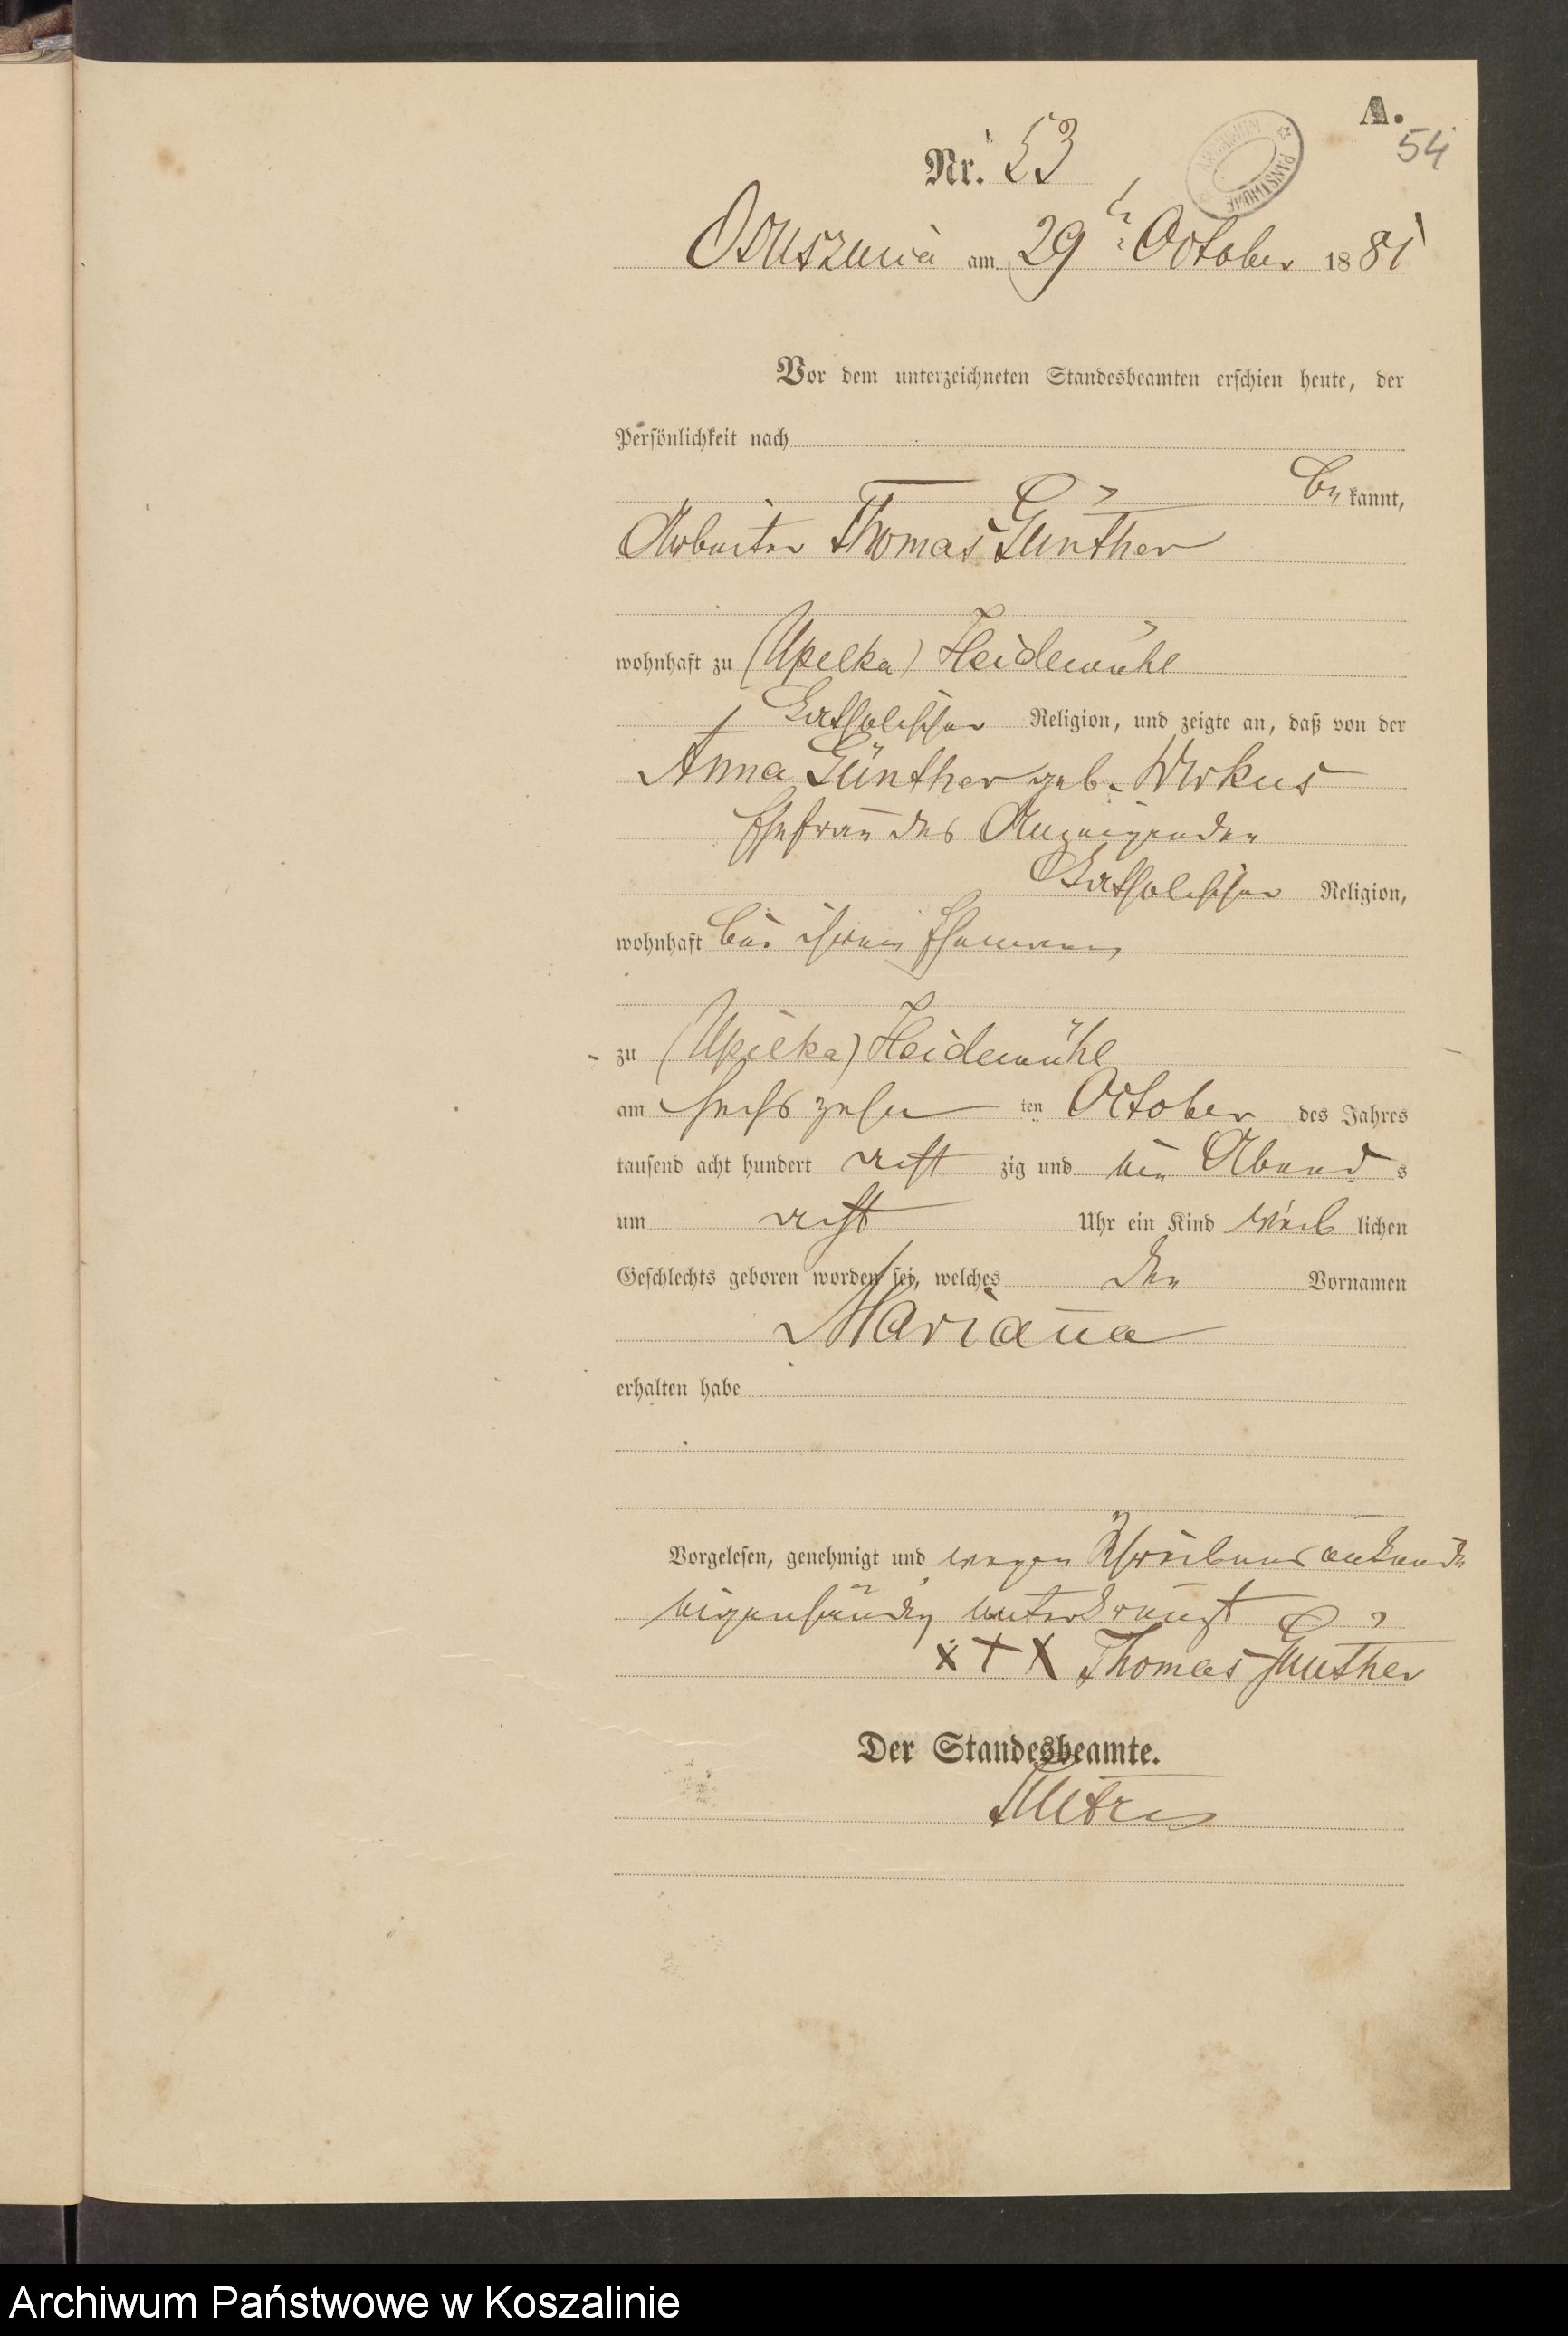 A.
54
Nr. 53
ARCHIWUM PAŃSTWOWE
Osusznica am 29ten October 1881
Vor dem unterzeichneten Standesbeamten erschien heute, der
Persönlichkeit nach
be kannt,
Arbeiter Thomas Günther
wohnhaft zu (Upilka) Heidemühl
katholischer Religion, und zeigte an, daß von der
Anna Günther geb. Wirkus
Ehefrau des Anzeigenden
katholischer Religion,
wohnhaft bei ihrem Ehemann
zu (Upilka) Heidemühl
am sechszehn ten October des Jahres
tausend acht hundert acht zig und ein Abend s
um acht Uhr ein Kind weib lichen
Geschlechts geboren worden sei, welches den Vornamen
Marianna
erhalten habe
Vorgelesen, genehmigt und wegen Schreibensunkunde
eigenhändig unterkreuzt
x + x Thomas Günther
Der Standesbeamte.
Archiwum Państwowe w Koszalinie